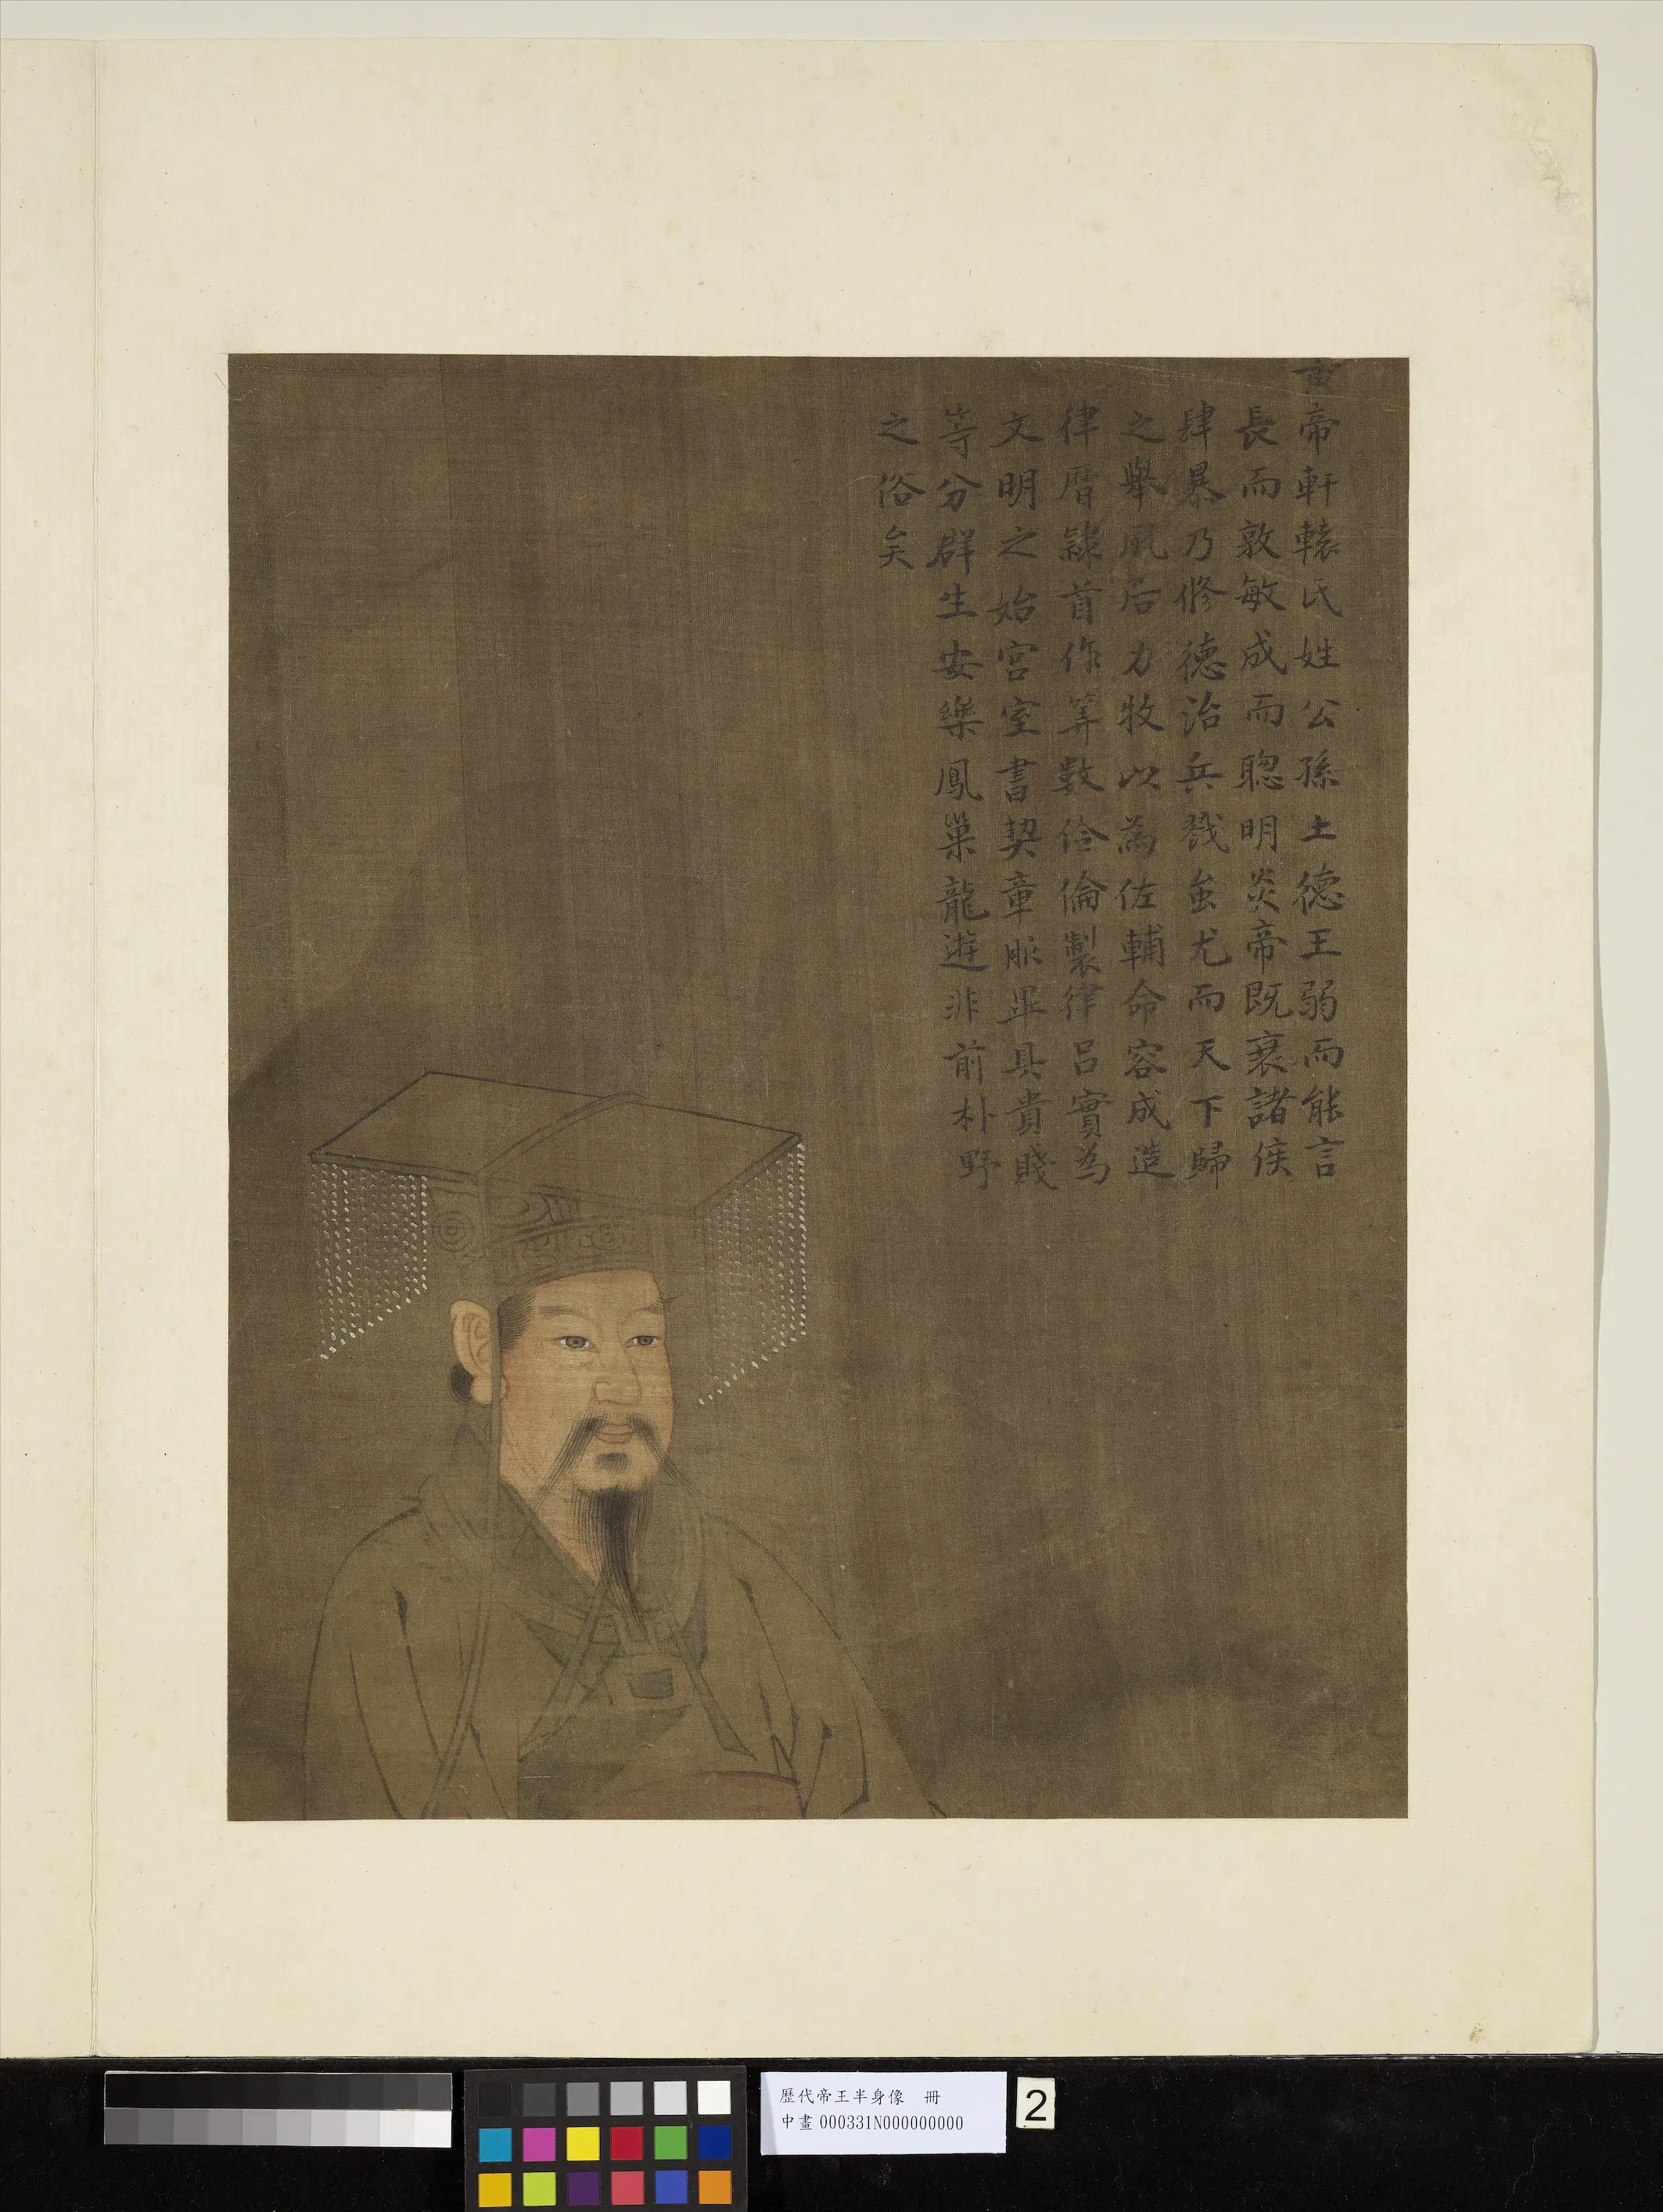 帝軒轅氏姓公孫土德王弱而能言
長而敦敏成而聰明炎帝既衰諸侯
肆暴乃修德治兵戮蚩尤而天下歸
之舉風后力牧以為佐輔命容成造
律曆隸首作筭數伶倫製律呂實為
文明之始宮室書契章服畢具貴賤
等分群生安樂鳳巢龍遊非前朴野
之俗矣
歷代帝王半身像 冊
中畫 000331N000000000
2